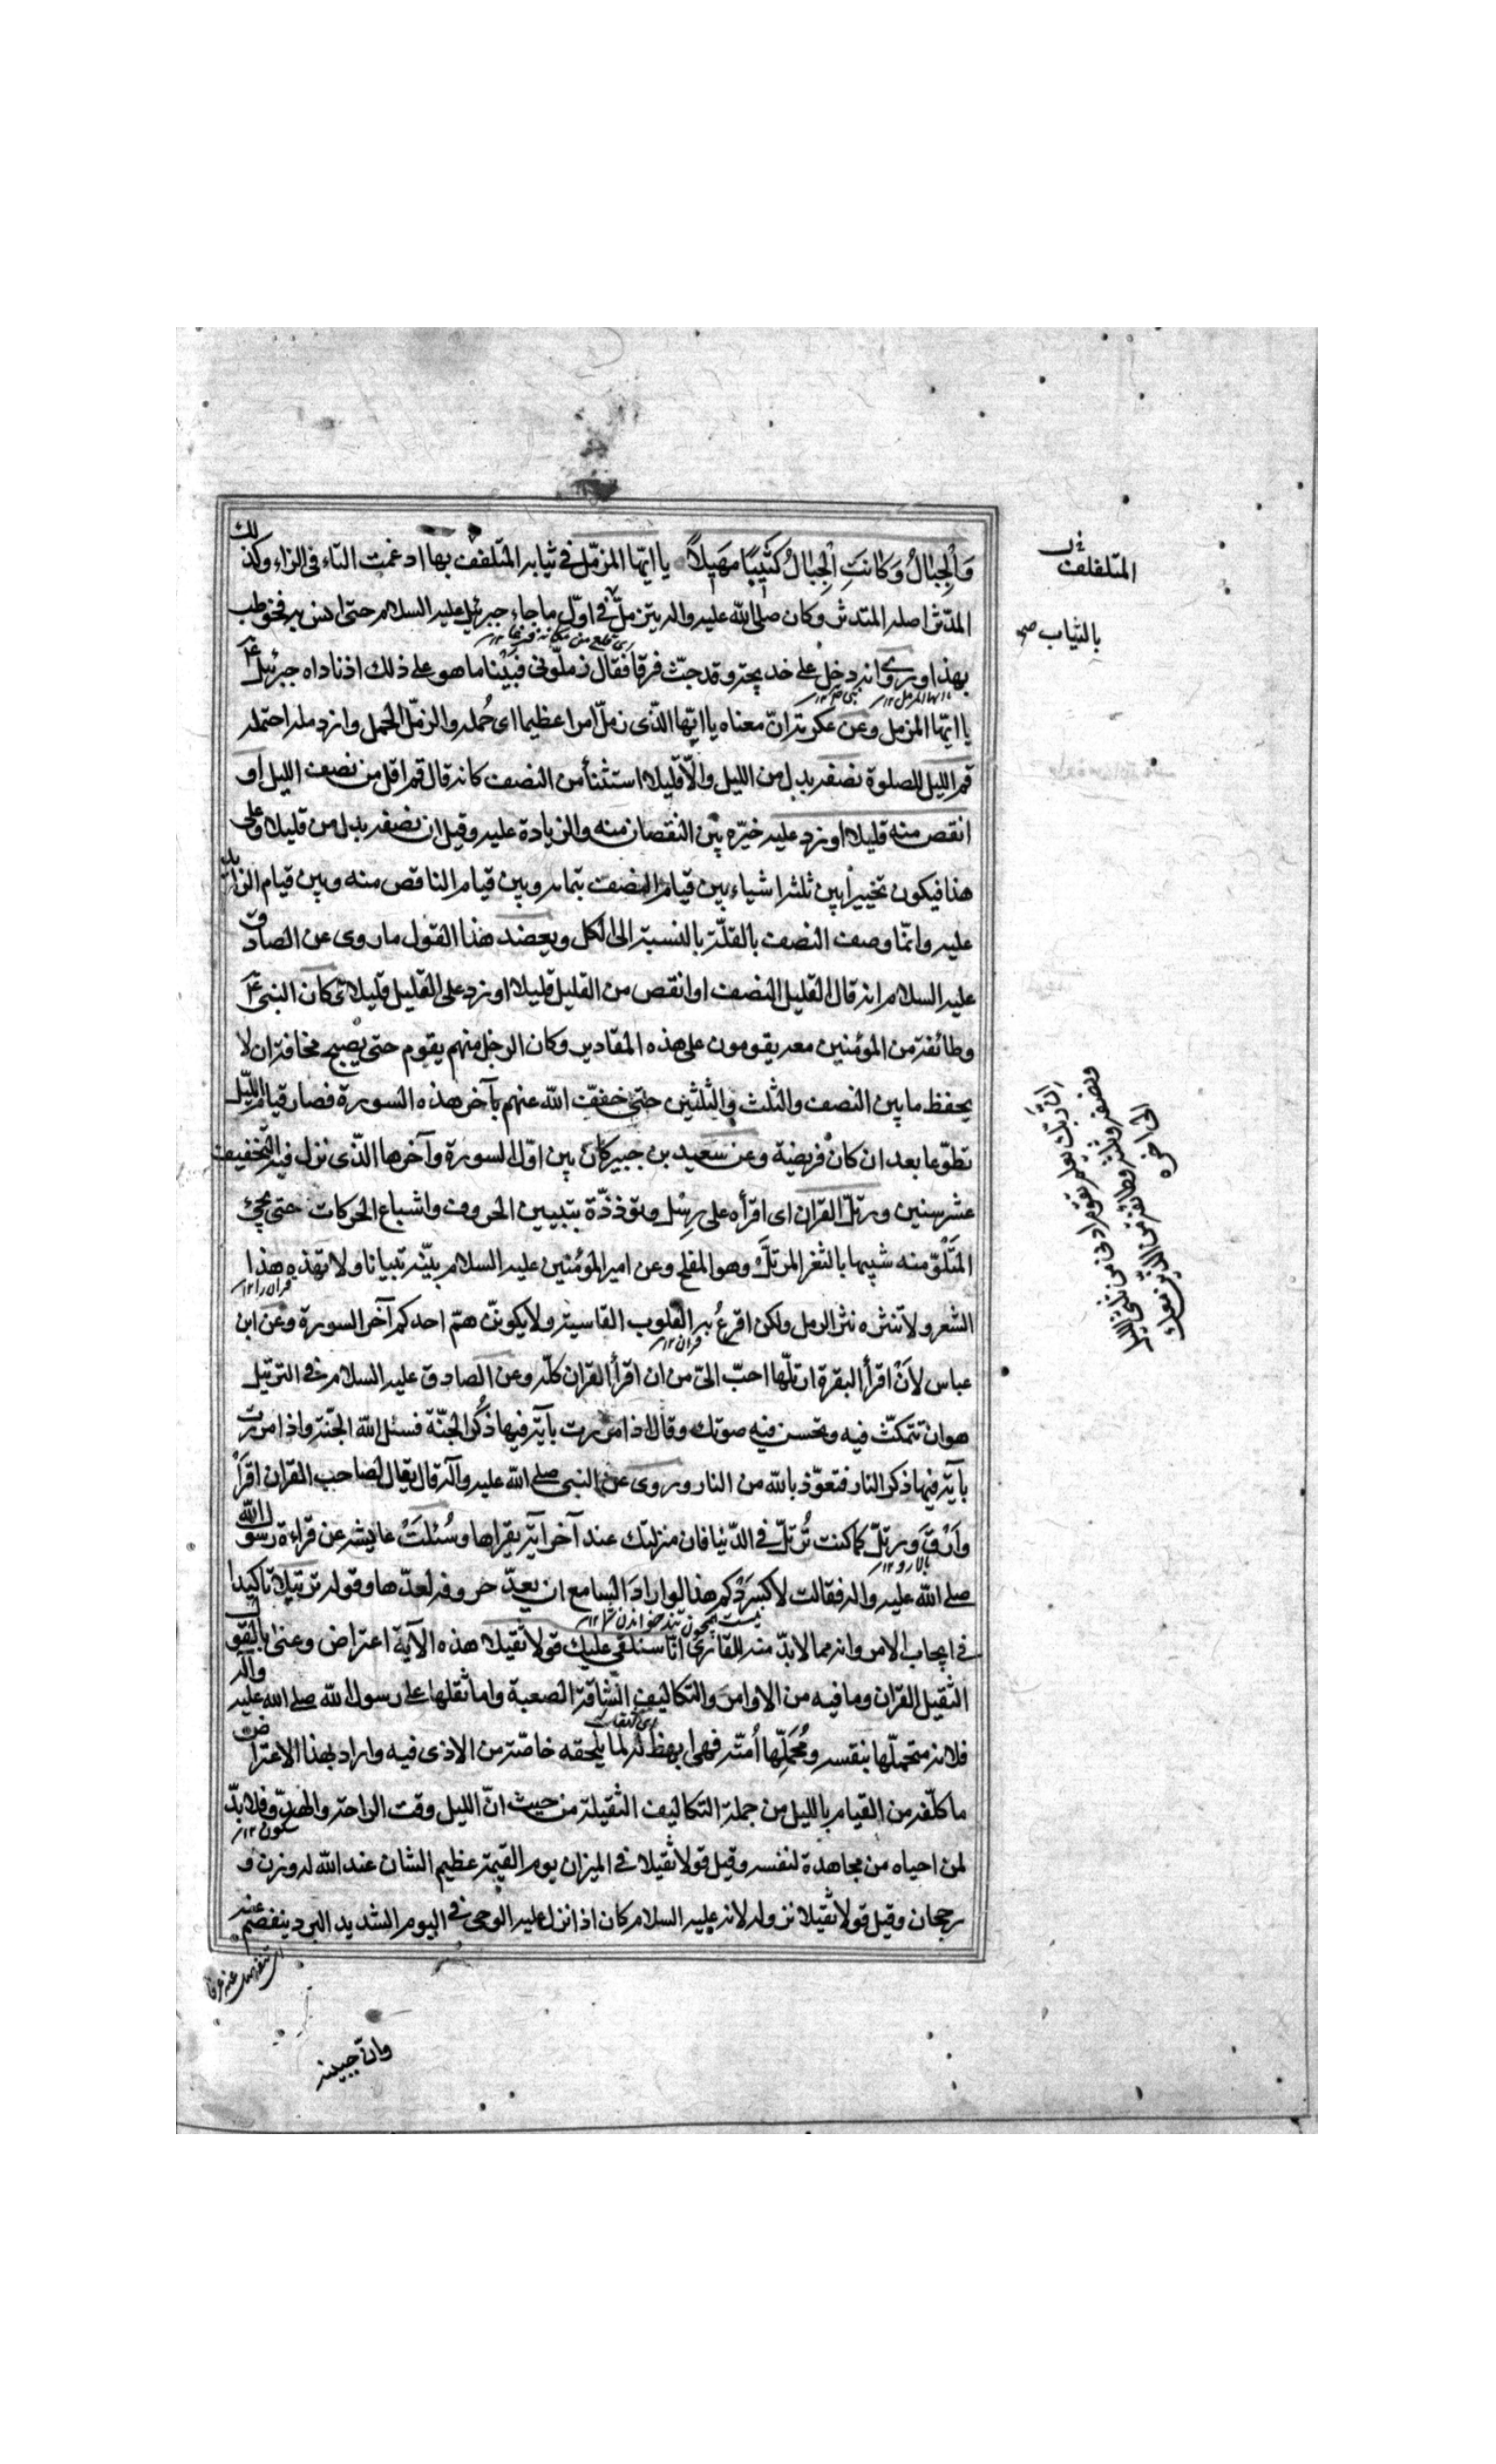 وَالْجِبَالُ وَكَانَتِ الْجِبَالُ كَثِيبًا مَهِيلًا يا ايها المزمّل في ثيابه المتلفف بها ادغمت التاء في الزاء وكذلك
المدّثّر اصله المتدثر وكان صلى الله عليه واله يتزمّل في اوّل ما جاء جبرئيل عليه السلام حتى انس به فخوطب
بهذا وروي انه دخل على خديجة وقد جئث فرقا فقال زمّلوني فبينا هو على ذلك اذ ناداه جبرئيل ع
يا ايها المزمل وعن عكرمة انّ معناه يا ايها الذّي زمّل امرا عظيما اى حُمله والزمل الحمل وازدمله احتمله
قم الليل للصلوة نصفه بدل من الليل والّا قليلا استثناء من النصف كانه قال قم اقل من نصف الليل او
انقص منه قليلا او زد عليه خيّره بين النقصان منه والزيادة عليه وقيل ان نصفه بدل من قليلا وعلى
هذا فيكون تخييرا بين ثلثه اشياء بين قيام النصف بتمامه وبين قيام الناقص منه وبين قيام الزايد
عليه وانمّا وصف النصف بالقلّة بالنسبة الى الكل ويعضد هذا القول ما روى عن الصادق
عليه السلام انه قال القليل النصف او انقص من القليل قليلا او زد على القليل قليلا كان النبى ع
وطائفة من المؤمنين معه يقومون على هذه المقادير وكان الرجل منهم يقوم حتى يصبح مخافة ان لا
يحفظ ما بين النصف والثلث والثلثين حتى خفف الله عنهم بآخر هذه السورة فصار قيام الليل
تطوّعا بعد ان كان فريضة وعن سعيد بن جبير كان بين اوّل السورة وآخرها الذّى نزل فيه التخفيف
عشر سنين ورتّل القران اى اقرأه على رِسْل وتؤذة بتبيين الحروف واشباع الحركات حتى يجئ
المتلوّ منه شبيها بالثغر المرتل وهو المفلج وعن امير المؤمنين عليه السلام بيّنه تبيانا ولا تهذه هذا
الشعر ولا تنثره نثر الرمل ولكن اقرع به القلوب القاسية ولا يكوننّ همّ احدكم آخر السورة وعن ابن
عباس لأن اقرأ البقرة ارتلّها احبّ الىّ من ان اقرأ القران كلّه وعن الصادق عليه السلام في الترتيل
هو ان تتمكّث فيه وتحسن فيه صوتك وقال اذا مررت بآية فيها ذكر الجنّة فسئل الله الجنّة واذا مررت
بآية فيها ذكر النار فتعوّذ بالله من النار وروى عن النبى صلى الله عليه وآله قال يقال لصاحب القران اقرأ
وارْقَ ورتّل كما كنت تُرتّل في الدّنيا فان منزلتك عند آخر آية يقراها وسُئلت عايشه عن قراءة رسول الله
صلى الله عليه واله فقالت لا كسَرْدكم هذا لو اراد السامع ان يعدّ حروفه لعدّها وقوله ترتيلا تاكيدا
في ايجاب الامر وانه مما لا بدّ منه للقارئ انّا سنلقى عليك قولا ثقيلا هذه الآية اعتراض وعنى بالقول
الثقيل القران وما فيه من الاوامر والتكاليف الشّاقة الصعبة واما ثقلها على رسول الله صلى الله عليه واله
فلانه متحملّها بنفسه ومُحَمِّلها اُمتّه فهى ابهظ له لما يلحقه خاصّة من الاذى فيه واراد بهذا الاعتراض
ما كلّفه من القيام بالليل من جملة التكاليف الثقيلة من حيث انّ الليل وقت الراحة والهدوّ فلا بدّ
لمن احياه من مجاهدة لنفسه وقيل قولا ثقيلا في الميزان يوم القيمة عظيم الشان عند الله له وزن و
رجحان وقيل قولا ثقيلا نزوله لانه عليه السلام كان اذا نزل عليه الوحى في اليوم الشديد البرد ينفصم عنه
وان جبينه
المتلفف
بالثياب صح
ان ربّك يعلم انك تقوم ادنى من ثلثى الليل
ونصفه وثلثه وطائفة من الذين معك
الى اخره